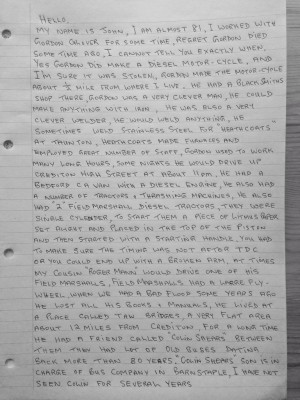 HELLO,
MY NAME IS JOHN, I AM ALMOST 81, I WORKED WITH
GORDON GLOVER FOR SOME TIME, REGRET GORDON DIED
SOME TIME AGO, I CANNOT TELL YOU EXACTLY WHEN,
YES GORDON DID MAKE A DIESEL MOTOR-CYCLE, AND
I'M SURE IT WAS STOLEN, GORDON MADE THE MOTOR-CYCLE
ABOUT ½ MILE FROM WHERE I LIVE, HE HAD A BLACK SMITHS
SHOP THERE, GORDON WAS A VERY CLEVER MAN, HE COULD
MAKE ANYTHING WITH IRON, HE WAS ALSO A VERY
CLEVER WELDER, HE WOULD WELD ANYTHING, HE
SOMETIMES WELD STAINLESS STEEL FOR HEATHCOATS
AT TIVERTON, HEATHCOATS MADE
EMPLOYED GREAT NUMBER OF STAFF, GORDON USED TO WORK
MANY LONG HOURS, SOME NIGHTS HE WOULD DRIVE UP
CREDITON HIGH STREET AT ABOUT 11 PM, HE HAD A
BEDFORD CA VAN WITH A DIESEL ENGINE, HE ALSO HAD
A NUMBER OF TRACTORS & THRASHING MACHINES, HE ALSO
HAD 2 FIELD MARSHALL DIESEL TRACTORS, THEY WERE
SINGLE CYLINDER, TO START THEM A PIECE OF PAPER
SET ALIGHT AND PLACED IN THE TOP OF THE PISTON
AND THEN STARTED WITH A STARTING HANDLE, YOU HAD
TO MAKE SURE THE TIMING WAS NOT AFTER TDC
OR YOU COULD END UP WITH A BROKEN ARM, AT TIMES
MY COUSIN ROGER WOULD DRIVE ONE OF HIS
FIELD MARSHALLS, FIELD MARSHALLS HAD A LARGE FLY-
WHEEL, WHEN WE HAD A BAD FLOOD SOME YEARS AGO
HE LOST ALL HIS BOOKS & MANUALS, HE LIVED AT
A PLACE CALLED TAW BRIDGES, A VERY FLAT AREA
ABOUT 12 MILES FROM CREDITON, FOR A LONG TIME
HE HAD A FRIEND CALLED COLIN SHEARS BETWEEN
THEM THEY HAD LOT OF OLD BUSES DATING
BACK MORE THAN 80 YEARS, COLIN SHEARS SON IS IN
CHARGE OF BUS COMPANY IN BARNSTAPLE, I HAVE NOT
SEEN COLIN FOR SEVERAL YEARS